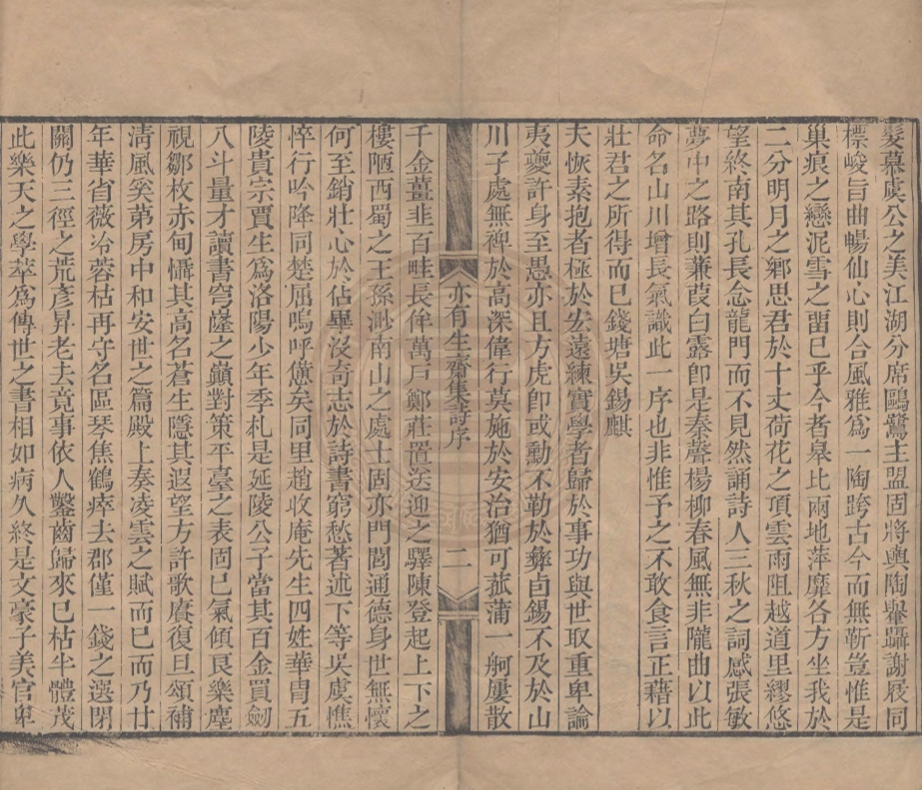 髮慕虞公之美江湖分席鷗鷺主盟固將輿陶轝躡謝屐同
標峻旨曲暢仙心則合風雅爲一陶跨古今而無靳豈惟是
巢痕之戀泥雪之畱巳乎今者皋比兩地萍靡各方坐我於
二分明月之鄉思君於十丈荷花之頂雲雨阻越道里繆悠
望終南其孔長念龍門而不見然誦詩人三秋之詞感張敏
夢中之路則蒹葭白露卽是秦聲楊柳春風無非隴曲以此
命名山川增長氣識此一序也非惟予之不敢食言正藉以
壯君之所得而巳錢塘吳錫麒
夫恢素抱者極於宏遠練實學者歸於事功與世取重卑論
夷夔許身至愚亦且方虎卽或勳不勒於彝卣錫不及於山
川子處無裨於高深偉行莫施於安治猶可菰蒲一舸屢散
亦有生齋集詩序 二
千金薑韭百畦長侔萬戶鄭莊置送迎之驛陳登起上下之
樓陋西蜀之王孫渺南山之處士固亦門閭通德身世無懷
何至銷壯心於佔畢沒奇志於詩書窮愁著述下等吳虞憔
悴行吟降同楚屈嗚呼傎矣同里趙收庵先生四姓華胄五
陵貴宗賈生爲洛陽少年季札是延陵公子當其百金買劒
八斗量才讀書穹窿之巓對策平臺之表固巳氣傾艮樂塵
視鄒枚赤甸懾其高名蒼生隱其遐望方許歌賡復旦頌補
淸風奚第房中和安世之篇殿上奏凌雲之賦而巳而乃廿
年華省薇冷蓉枯再守名區琴焦鶴瘁去郡僅一錢之選閉
關仍三徑之荒彥昇老去竟事依人鑿齒歸來巳枯半體茂
此樂天之學萃爲傳世之書相如病久終是文豪子美官卑